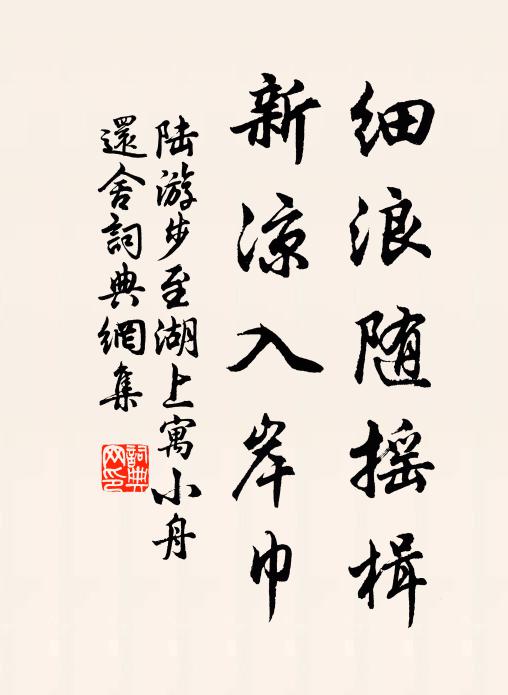 细浪随摇楫
新凉入岸巾
陆游步至湖上寓小舟
還舍詞典網集
詞典网印